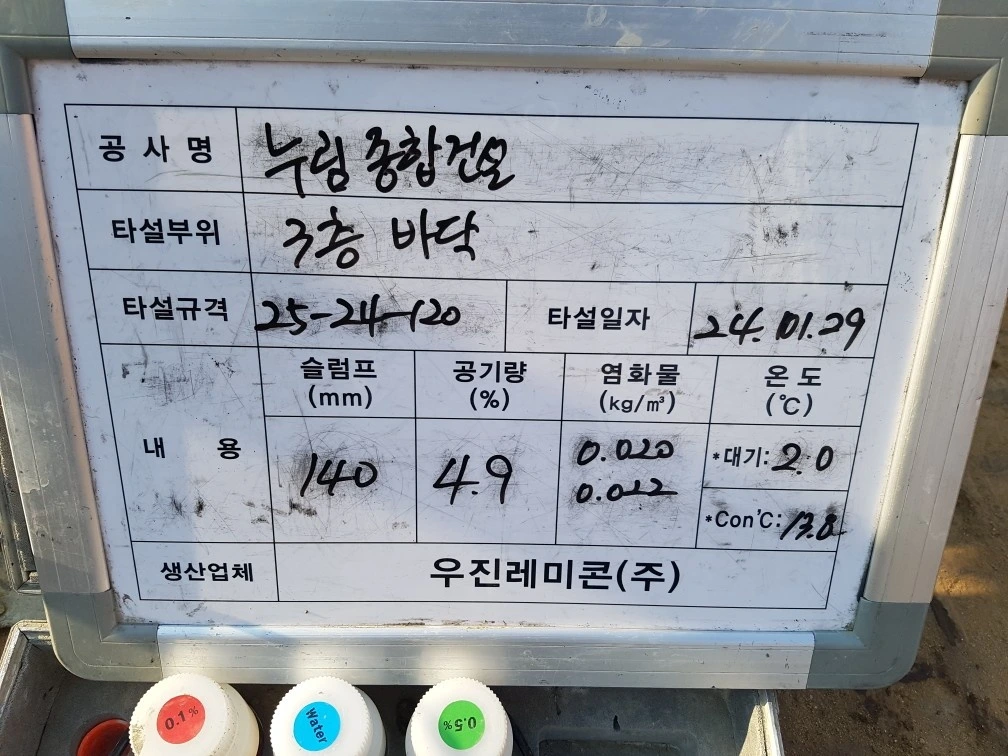 공 사 명 누림종합건설
타설부위 3층 바닥
타설규격 25-24-120 타설일자 24.01.29
내 용 슬럼프 (mm) 공기량 (%) 염화물 (kg/㎥) 온 도 (℃)
140 4.9 0.020 *대기: 2.0
0.022 *Con'C: 13.8
생산업체 우진레미콘(주)
0.1% Water 0.5%